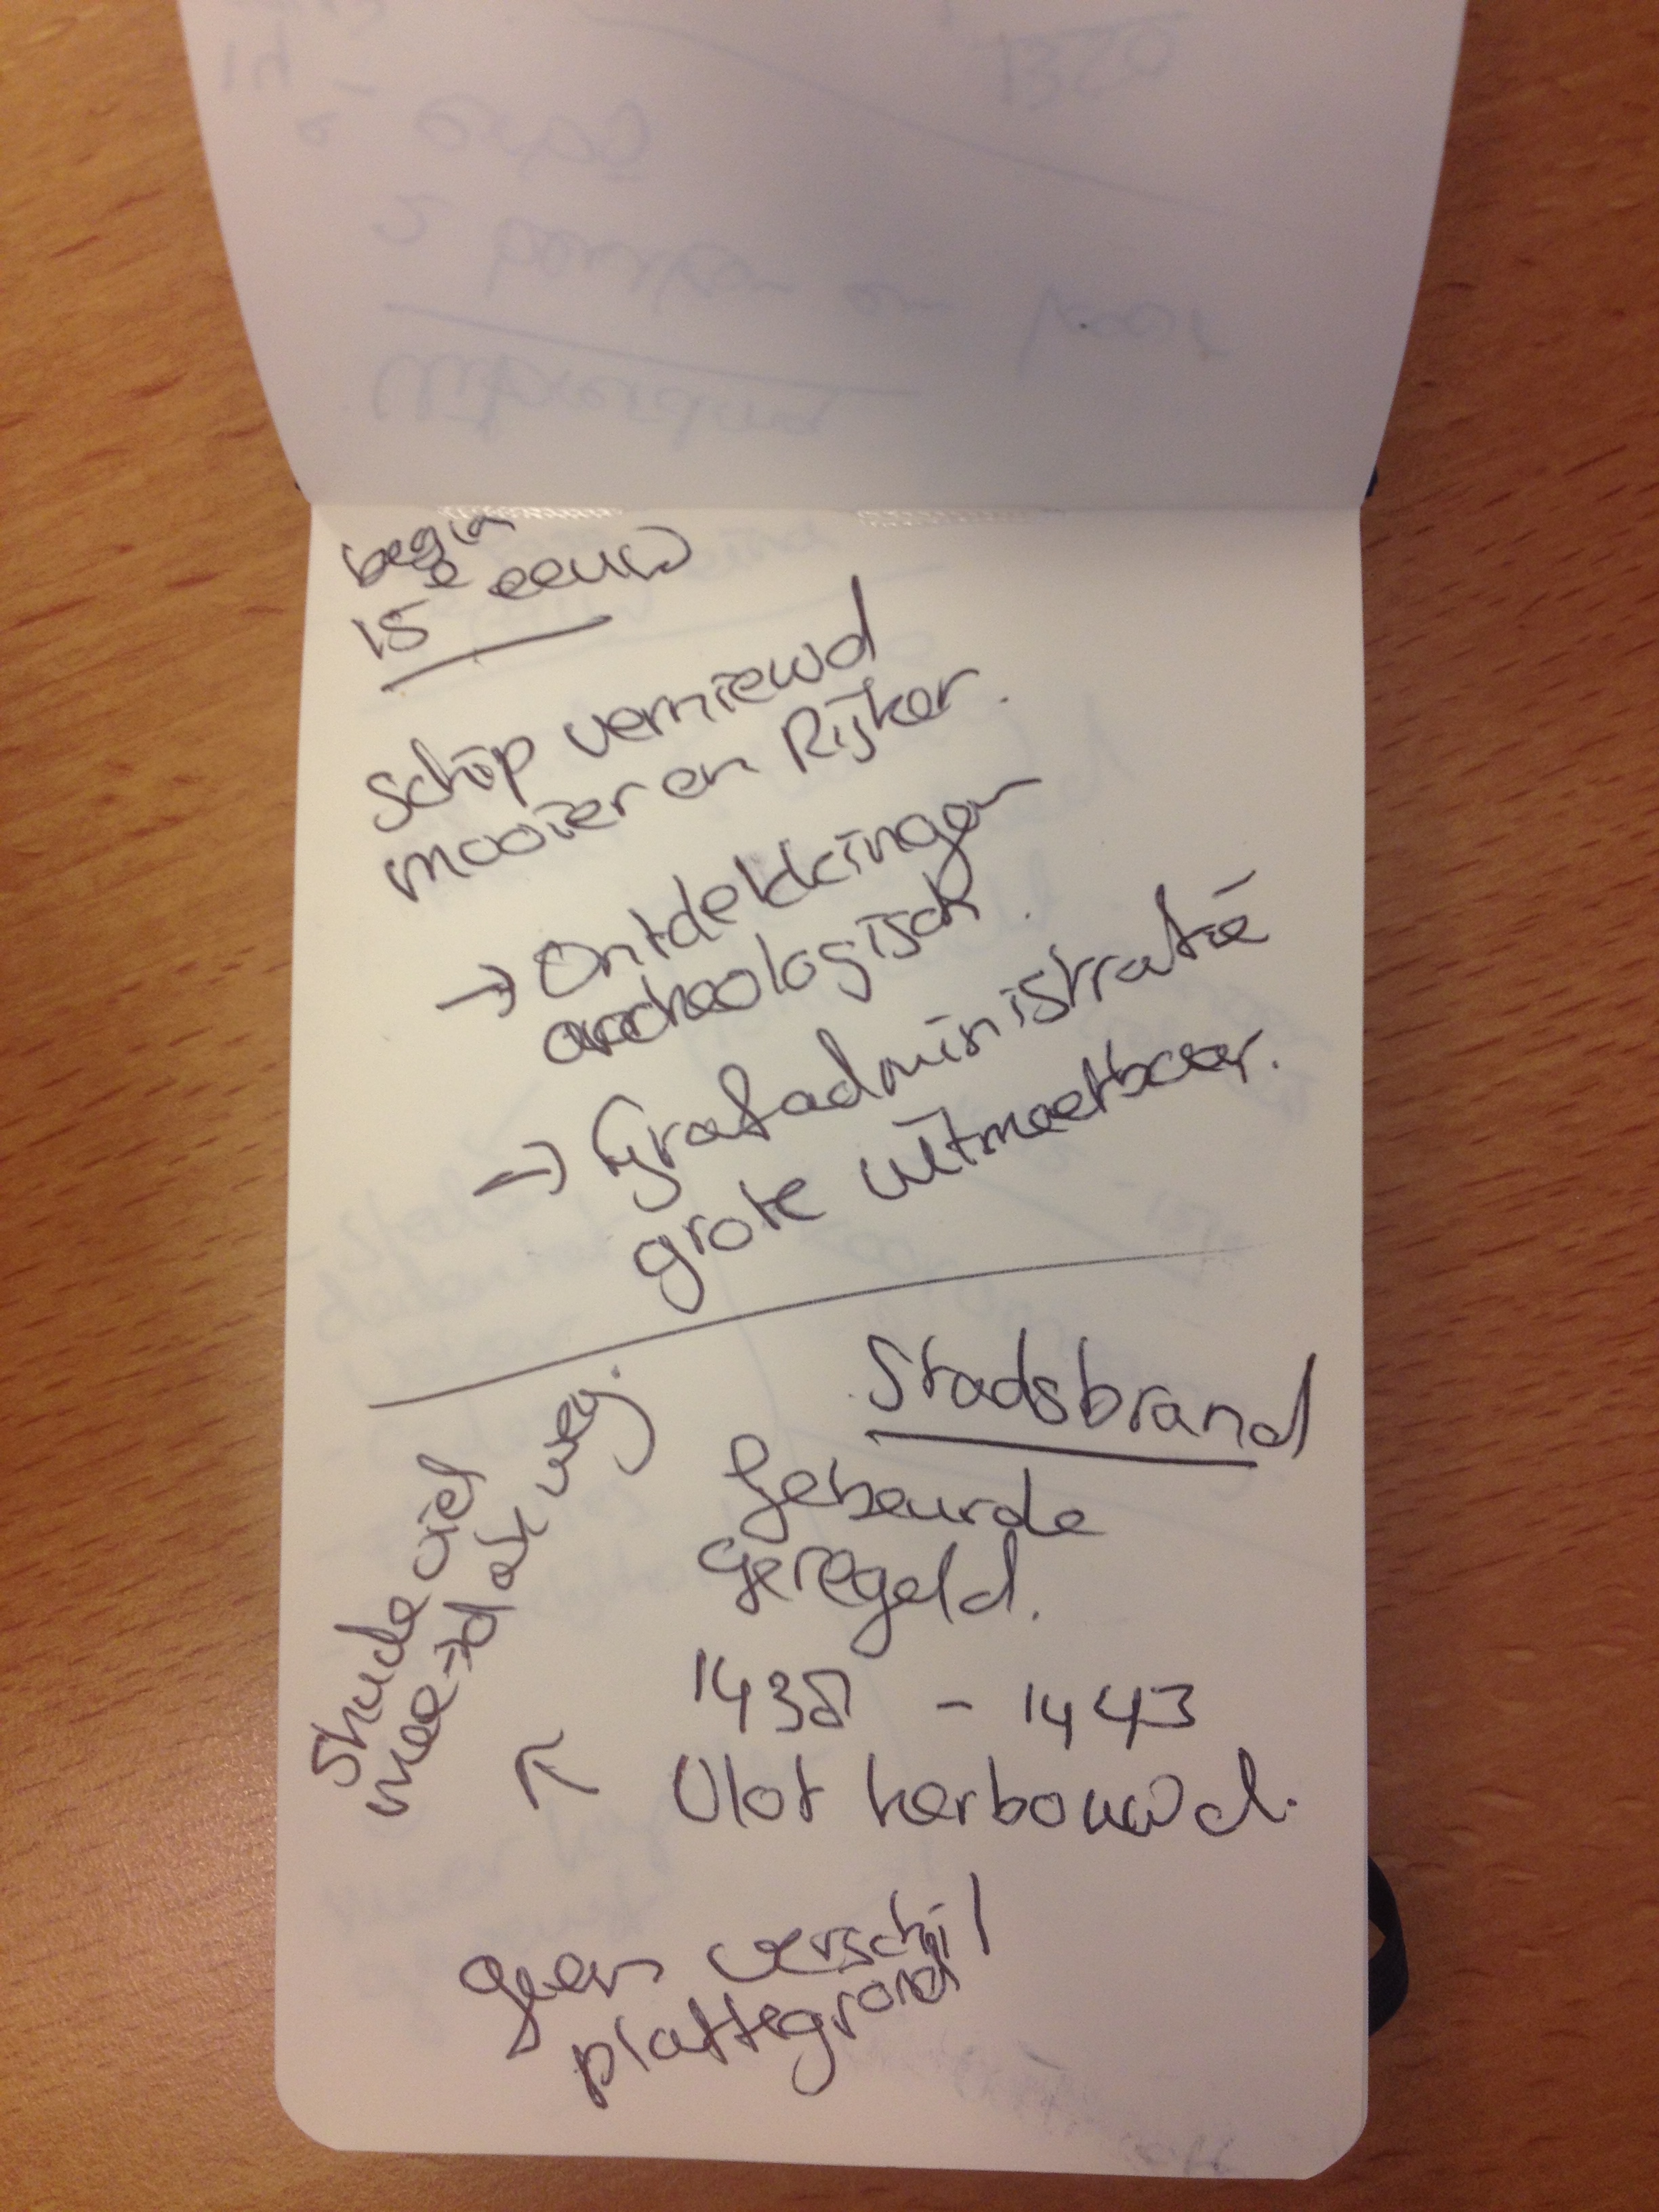 begin
15e eeuw
Schip verniewd
mooier en Rijker.
→ Ontdekkingen
archeologisch.
→ Grafadministratie
grote uitmeetbaar.
Stadsbrand
Gebeurde
geregeld.
1438 - 1443
Vlot herbouwd.
viel
mee → dak weg.
geen verschil
plattegrond